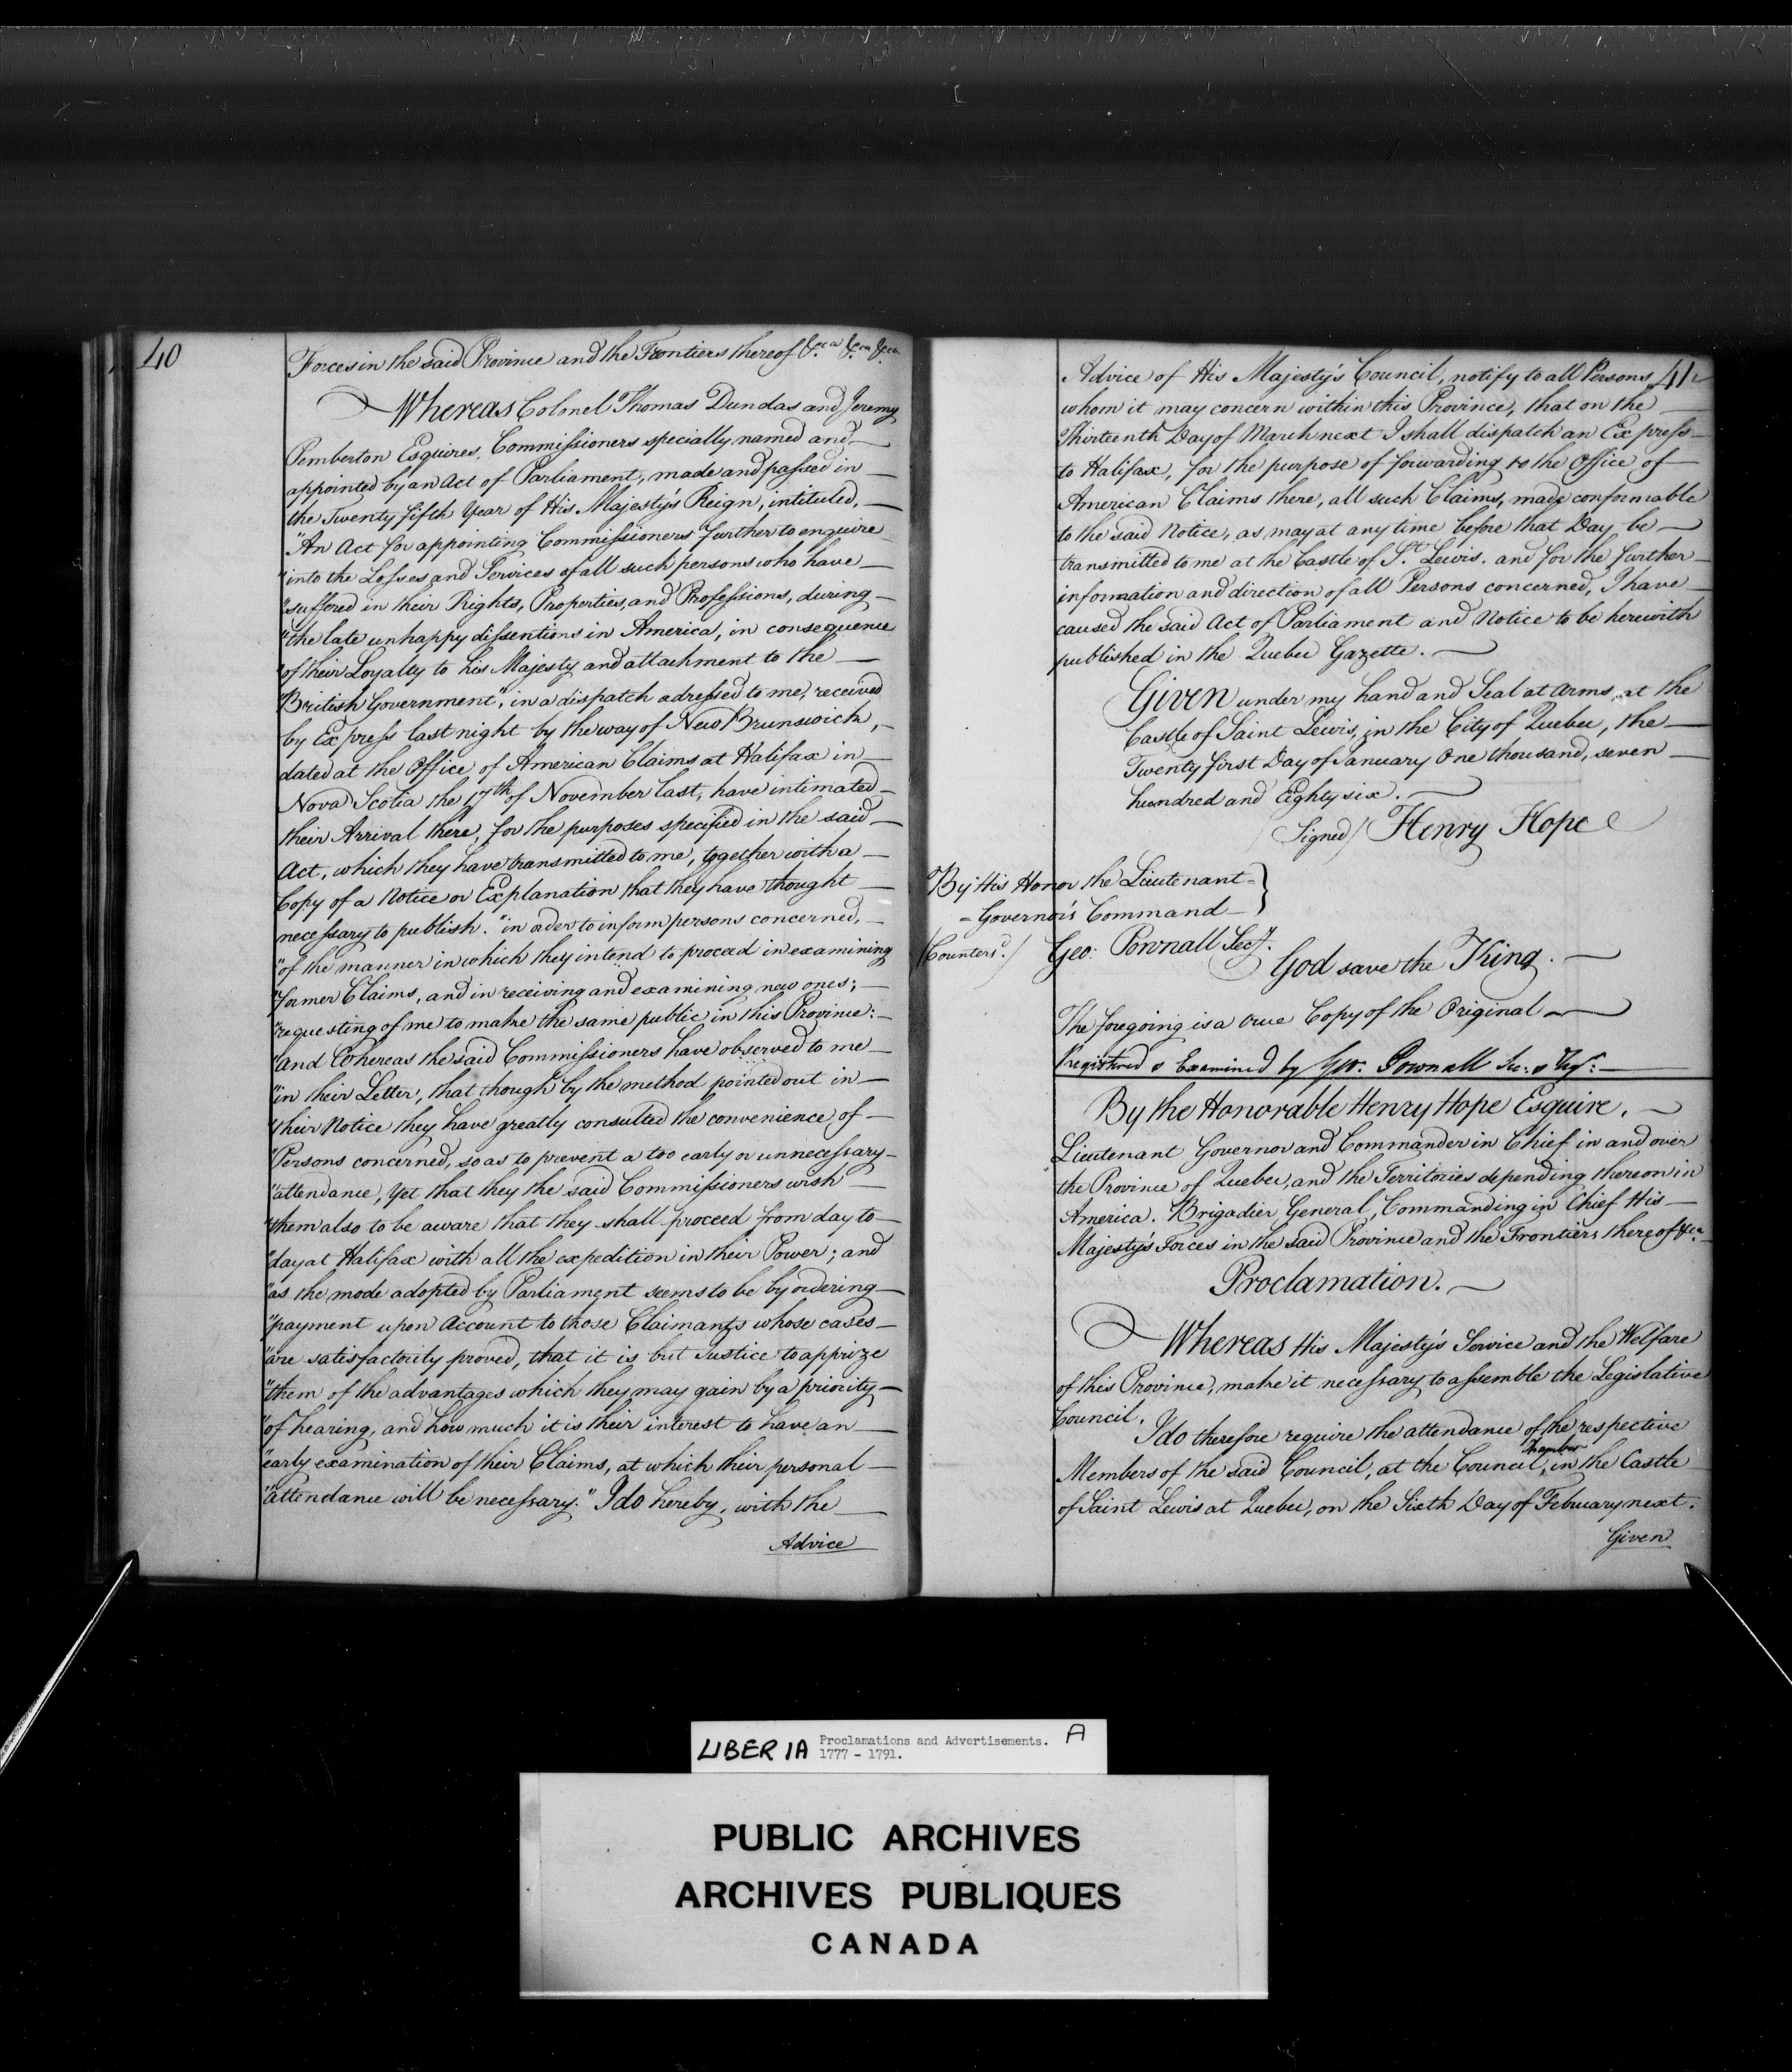 40
Forces in the said Province and the Frontiers thereof &ca &ca &ca
Whereas Colonel Thomas Dundas and Jeremy
Pemberton Esquires, Commissioners specially named and
appointed by an Act of Parliament, made and passed in
the Twenty fifth Year of His Majesty's Reign, intituled,
"An Act for appointing Commissioners further to enquire
"into the Losses and Services of all such persons who have
"suffered in their Rights, Properties, and Professions, during
"the late unhappy dissentions in America, in consequence
"of their Loyalty to his Majesty and attachment to the
"British Government", in a dispatch adressed to me, received
by Express last night by the way of New Brunswick,
dated at the Office of American Claims at Halifax in
Nova Scotia the 17th of November last, have intimated
their Arrival there, for the purposes specified in the said
Act, which they have transmitted to me, together with a
Copy of a Notice or Explanation that they have thought
necessary to publish. "in order to inform persons concerned,
"of the manner in which they intend to proceed in examining
"former Claims, and in receiving and examining new ones;
"requesting of me to make the same public in this Province:
"and Whereas the said Commissioners have observed to me
"in their Letter, that though by the method pointed out in
"their Notice they have greatly consulted the convenience of
"Persons concerned, so as to prevent a too early or unnecessary
"attendance, Yet that they the said Commissioners wish
"them also to be aware that they shall proceed from day to
"day at Halifax with all the expedition in their Power; and
"as the mode adopted by Parliament seems to be by ordering
"payment upon Account to those Claimants whose cases
"are satisfactorily proved, that it is but Justice to apprize
"them of the advantages which they may gain by a priority
"of hearing, and how much it is their interest to have an
"early examination of their Claims, at which their personal
"attendance will be necessary." I do hereby, with the
Advice
41
Advice of His Majesty's Council, notify to all Persons
whom it may concern within this Province, that on the
Thirteenth Day of March next I shall dispatch an Express
to Halifax, for the purpose of forwarding to the Office of
American Claims there, all such Claims, made conformable
to the said Notice, as may at any time before that Day be
transmitted to me at the Castle of St. Lewis. and for the further
information and direction of all Persons concerned, I have
caused the said Act of Parliament and Notice to be herewith
published in the Quebec Gazette.
Given under my hand and Seal at Arms, at the
Castle of Saint Lewis, in the City of Quebec, the
Twenty first Day of January One thousand, seven
hundred and Eighty six.
/Signed/ Henry Hope
By His Honor the Lieutenant
=Governor's Command }
/Counters.d/ Geo: Pownall Secy.
God save the King.
The foregoing is a true Copy of the Original
Registered & Examined by Geo: Pownall Sec: & Regr:
By the Honorable Henry Hope Esquire,
Lieutenant Governor and Commander in Chief in and over
the Province of Quebec, and the Territories depending thereon in
America. Brigadier General, Commanding in Chief His
Majesty's Forces in the said Province and the Frontiers thereof &ca.
Proclamation.
Whereas His Majesty's Service and the Welfare
of this Province, make it necessary to assemble the Legislative
Council.
I do therefore require the attendance of the respective
Chamber
Members of the said Council, at the Council, in the Castle
of Saint Lewis at Quebec, on the Sixth Day of February next.
Given
LIBER IA Proclamations and Advertisements. A
1777 - 1791.
PUBLIC ARCHIVES
ARCHIVES PUBLIQUES
CANADA